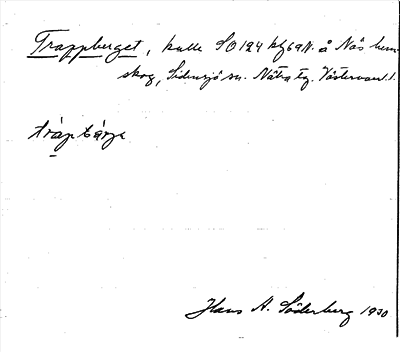 Trappberget, kulle SO124 kf69N. å Näs hem-
skog, Sidensjö sn. Nätra tg. Västernorrl. l.
tràpbárje
Hans A. Söderberg 1930